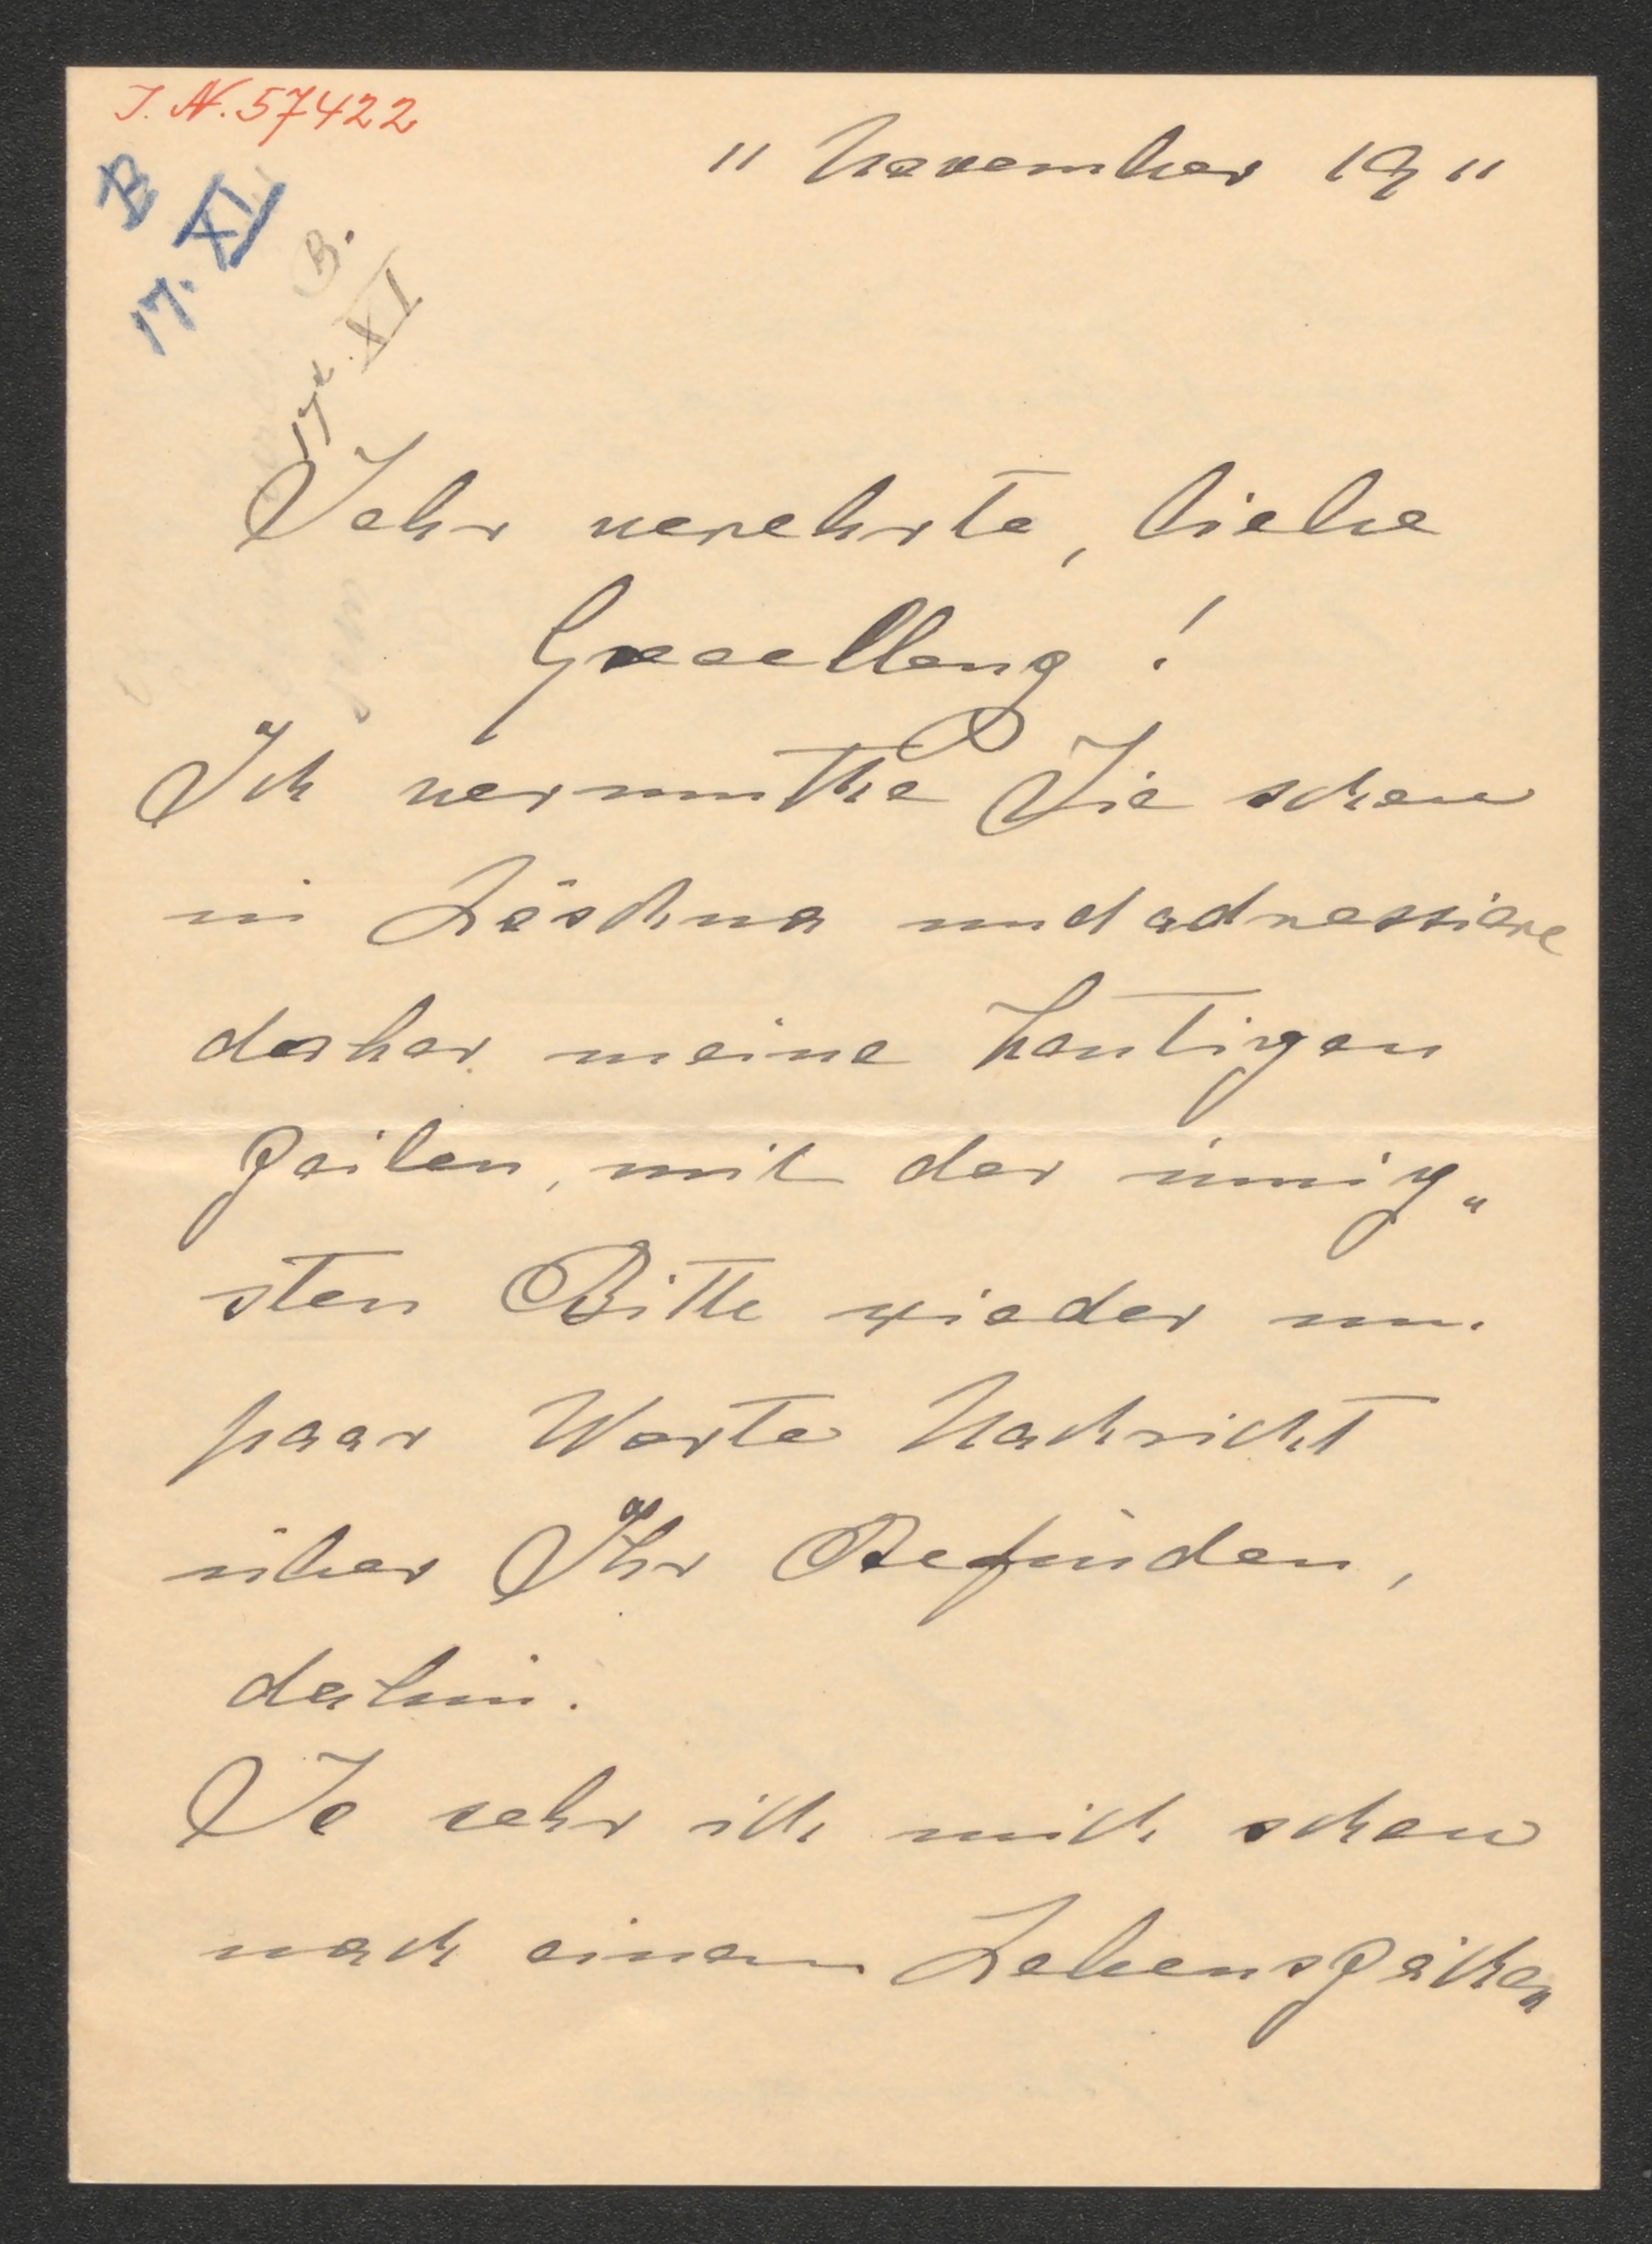 I. N. 57422
" November 19 "
B
17. XI
B.
17t. XI
Sehr verehrte, liebe
Excellenz !
Ich vermuthe Sie schon
in Löschna und adressiere
daher meine heutigen
Zeilen, mit der innig„
sten Bitte wieder um
paar Worte Nachricht
über Ihr Befinden,
dahin.
So sehr ich mich schon
nach einem Lebenszeichen